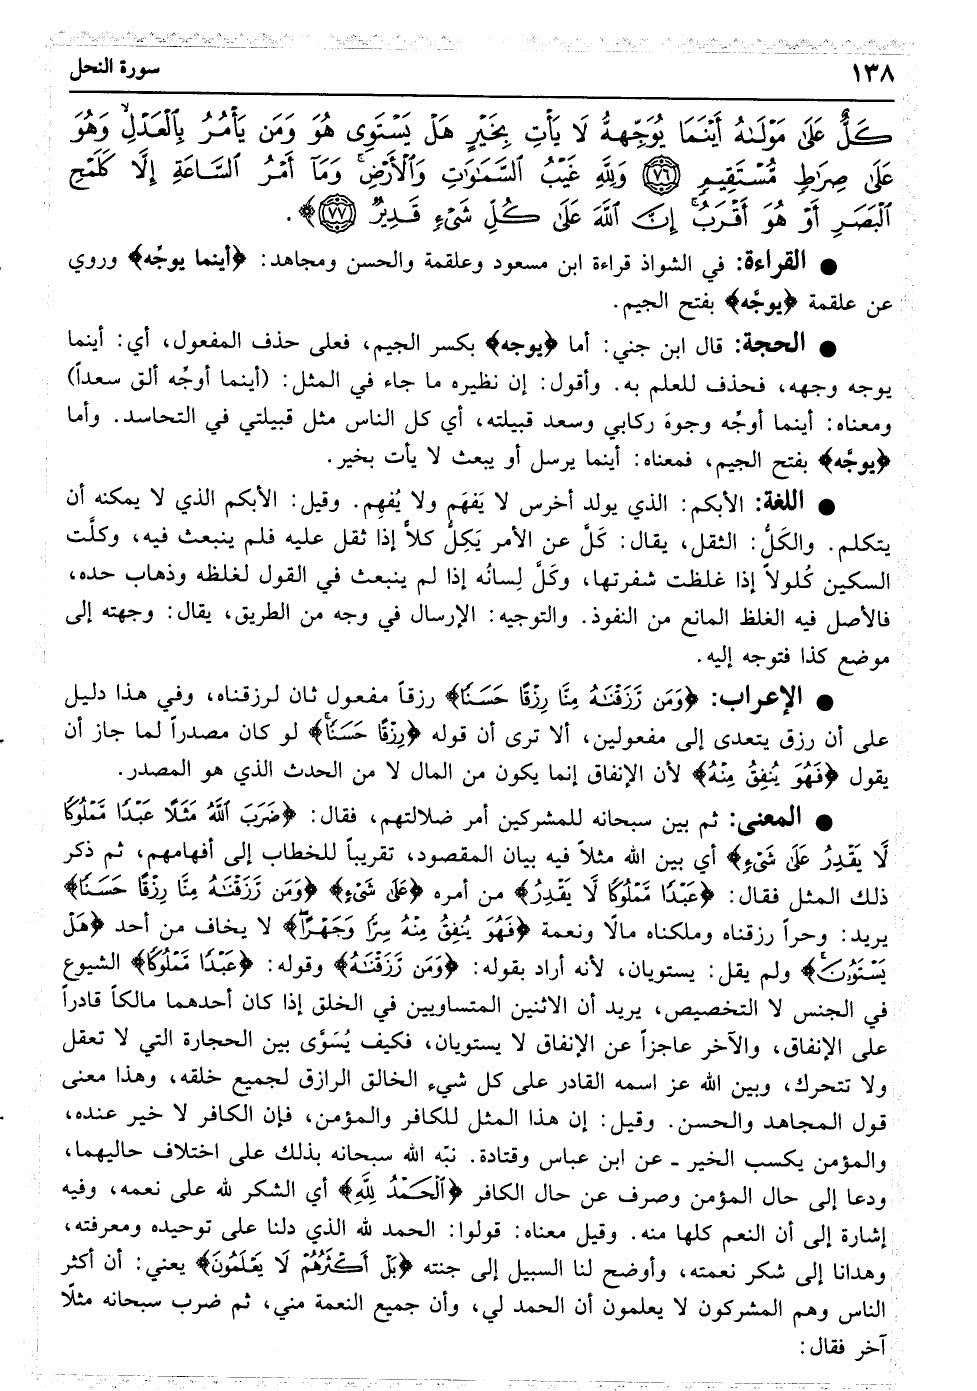 ١٣٨ سورة النحل
كَلٌّ عَلَىٰ مَوْلَىٰهُ أَيْنَمَا يُوَجِّههُّ لَا يَأْتِ بِخَيْرٍ هَلْ يَسْتَوِى هُوَ وَمَن يَأْمُرُ بِالْعَدْلِ وَهُوَ
عَلَىٰ صِرَاطٍ مُّسْتَقِيمٍ ﴿٧٦﴾ وَلِلَّهِ غَيْبُ السَّمَاوَاتِ وَالْأَرْضِ وَمَا أَمْرُ السَّاعَةِ إِلَّا كَلَمْحِ
الْبَصَرِ أَوْ هُوَ أَقْرَبُ إِنَّ اللَّهَ عَلَىٰ كُلِّ شَىْءٍ قَدِيرٌ ﴿٧٧﴾﴾.
● القراءة: في الشواذ قراءة ابن مسعود وعلقمة والحسن ومجاهد: ﴿أينما يوجِّه﴾ وروي
عن علقمة ﴿يوجَّه﴾ بفتح الجيم.
● الحجة: قال ابن جني: أما ﴿يوجه﴾ بكسر الجيم، فعلى حذف المفعول، أي: أينما
يوجه وجهه، فحذف للعلم به. وأقول: إن نظيره ما جاء في المثل: (أينما أوجِّه ألق سعداً)
ومعناه: أينما أوجِّه وجوهَ ركابي وسعد قبيلته، أي كل الناس مثل قبيلتي في التحاسد. وأما
﴿يوجَّه﴾ بفتح الجيم، فمعناه: أينما يرسل أو يبعث لا يأت بخير.
● اللغة: الأبكم: الذي يولد أخرس لا يَفهَم ولا يُفهِم. وقيل: الأبكم الذي لا يمكنه أن
يتكلم. والكَلُّ: الثقل، يقال: كَلَّ عن الأمر يَكِلُّ كلاًّ إذا ثقل عليه فلم ينبعث فيه، وكلَّت
السكين كُلولاً إذا غلظت شفرتها، وكَلَّ لِسانُه إذا لم ينبعث في القول لغلظه وذهاب حده،
فالأصل فيه الغلظ المانع من النفوذ. والتوجيه: الإرسال في وجه من الطريق، يقال: وجهته إلى
موضع كذا فتوجه إليه.
● الإعراب: ﴿وَمَن رَّزَقْنَاهُ مِنَّا رِزْقًا حَسَنًا﴾ رزقاً مفعول ثان لرزقناه، وفي هذا دليل
على أن رزق يتعدى إلى مفعولين، ألا ترى أن قوله ﴿رِزْقًا حَسَنًا﴾ لو كان مصدراً لما جاز أن
يقول ﴿فَهُوَ يُنفِقُ مِنْهُ﴾ لأن الإنفاق إنما يكون من المال لا من الحدث الذي هو المصدر.
● المعنى: ثم بين سبحانه للمشركين أمر ضلالتهم، فقال: ﴿ضَرَبَ اللَّهُ مَثَلًا عَبْدًا مَّمْلُوكًا
لَّا يَقْدِرُ عَلَىٰ شَىْءٍ﴾ أي بين الله مثلاً فيه بيان المقصود، تقريباً للخطاب إلى أفهامهم، ثم ذكر
ذلك المثل فقال: ﴿عَبْدًا مَّمْلُوكًا لَّا يَقْدِرُ﴾ من أمره ﴿عَلَىٰ شَىْءٍ﴾ ﴿وَمَن رَّزَقْنَاهُ مِنَّا رِزْقًا حَسَنًا﴾
يريد: وحراً رزقناه وملكناه مالًا ونعمة ﴿فَهُوَ يُنفِقُ مِنْهُ سِرًّا وَجَهْرًا﴾ لا يخاف من أحد ﴿هَلْ
يَسْتَوُونَ﴾ ولم يقل: يستويان، لأنه أراد بقوله: ﴿وَمَن رَّزَقْنَاهُ﴾ وقوله: ﴿عَبْدًا مَّمْلُوكًا﴾ الشيوع
في الجنس لا التخصيص، يريد أن الاثنين المتساويين في الخلق إذا كان أحدهما مالكاً قادراً
على الإنفاق، والآخر عاجزاً عن الإنفاق لا يستويان، فكيف يُسَوَّى بين الحجارة التي لا تعقل
ولا تتحرك، وبين الله عز اسمه القادر على كل شيء الخالق الرازق لجميع خلقه، وهذا معنى
قول المجاهد والحسن. وقيل: إن هذا المثل للكافر والمؤمن، فإن الكافر لا خير عنده،
والمؤمن يكسب الخير ـ عن ابن عباس وقتادة. نبّه الله سبحانه بذلك على اختلاف حاليهما،
ودعا إلى حال المؤمن وصرف عن حال الكافر ﴿الْحَمْدُ لِلَّهِ﴾ أي الشكر لله على نعمه، وفيه
إشارة إلى أن النعم كلها منه. وقيل معناه: قولوا: الحمد لله الذي دلنا على توحيده ومعرفته،
وهدانا إلى شكر نعمته، وأوضح لنا السبيل إلى جنته ﴿بَلْ أَكْثَرُهُمْ لَا يَعْلَمُونَ﴾ يعني: أن أكثر
الناس وهم المشركون لا يعلمون أن الحمد لي، وأن جميع النعمة مني، ثم ضرب سبحانه مثلًا
آخر فقال: